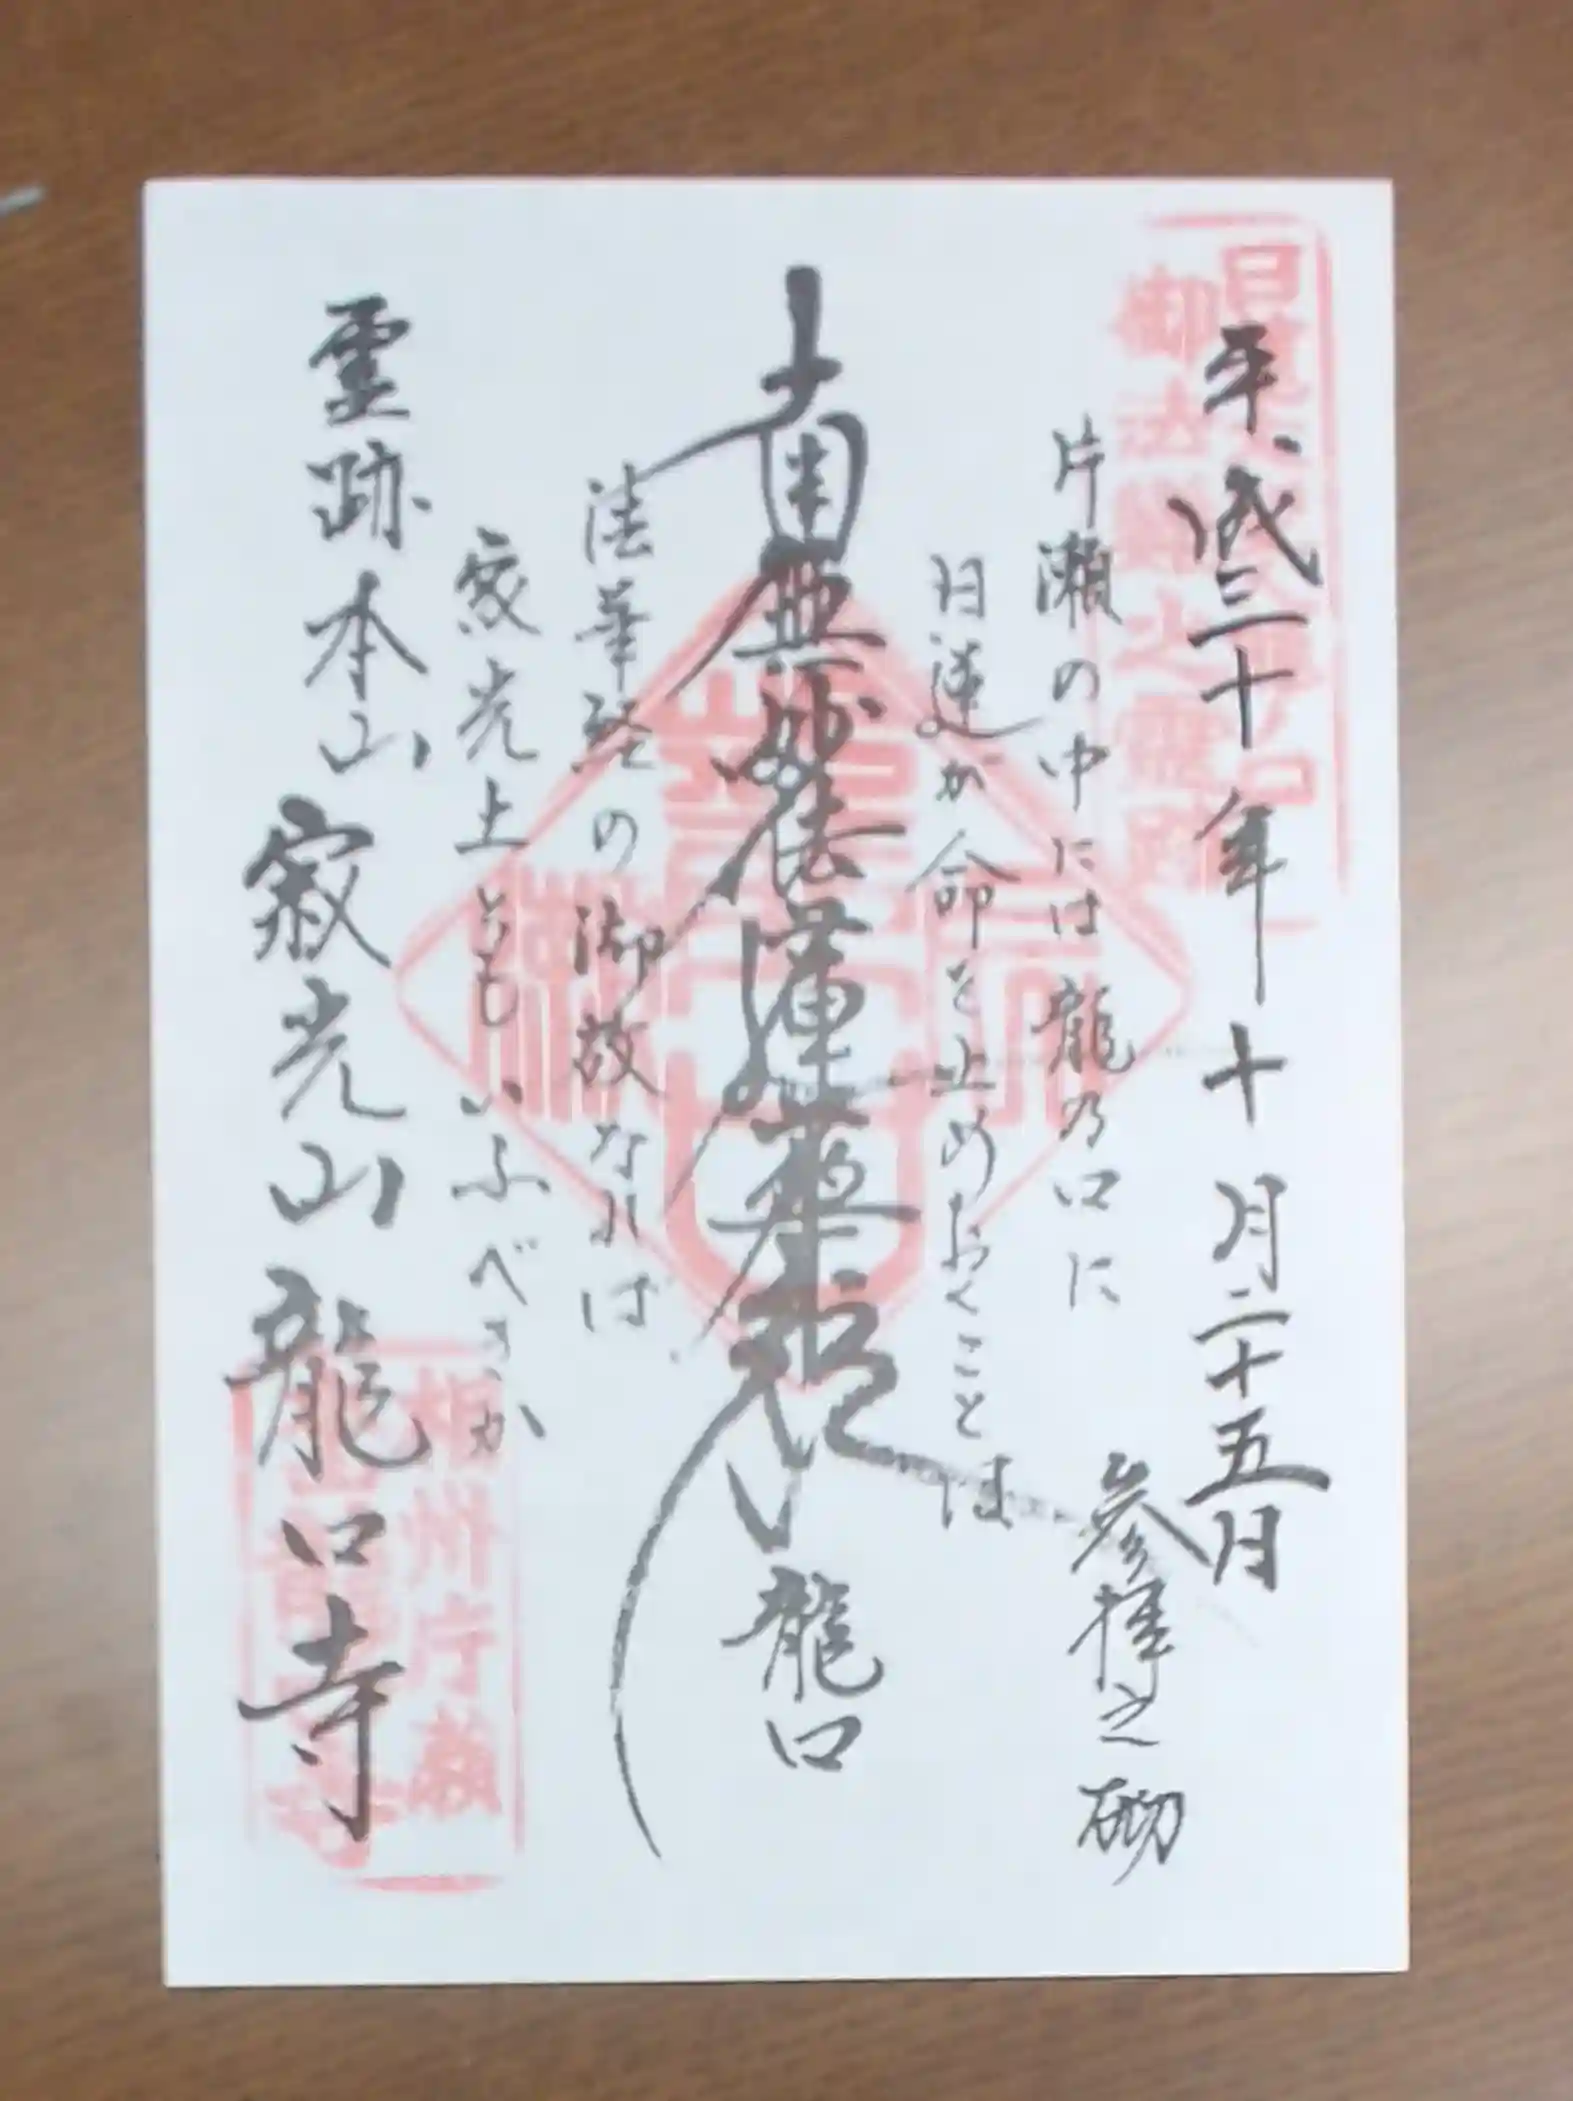 平成三十年十月二十五日
参拝之砌
片瀬の中には龍乃口に
日蓮が命を止めおくことは
南無妙法蓮華経
龍口
法華経の御故なれば
寂光土ともいふべきか
霊跡本山 寂光山 龍口寺
御法難之霊跡
相州片瀬
龍口寺